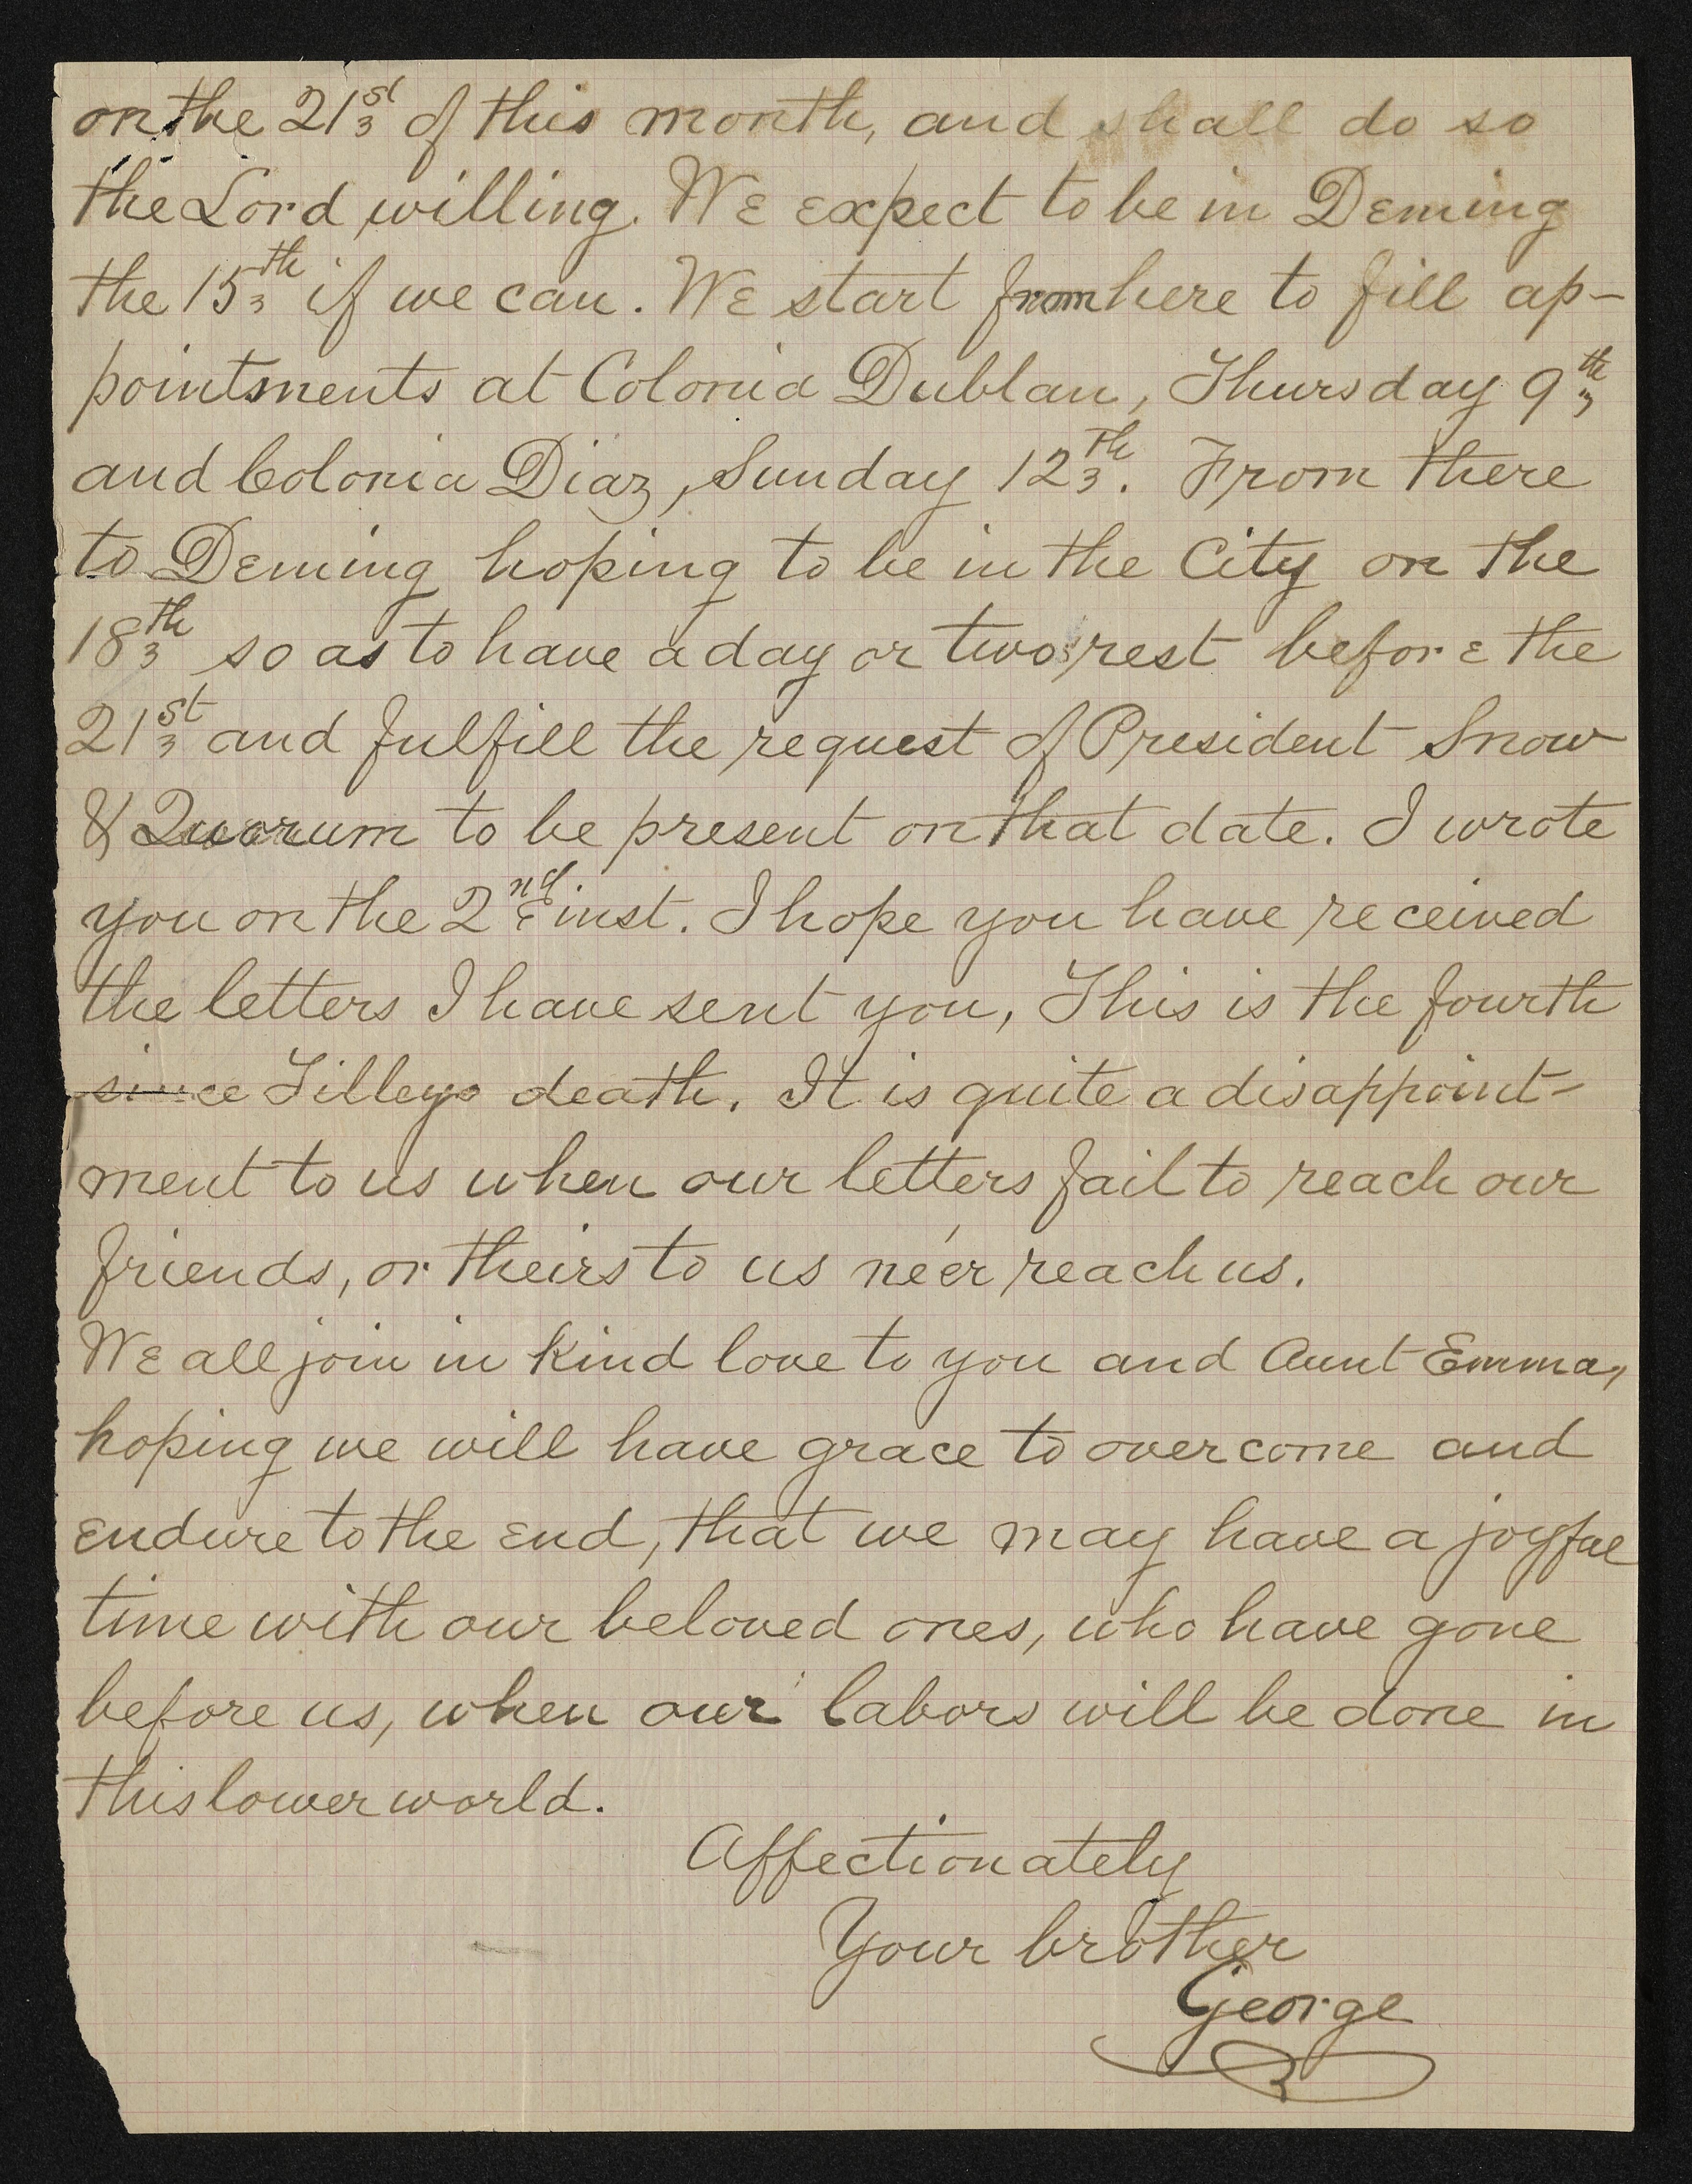 on the 21st of this month, and shall do so
the Lord willing. We expect to be in Deming
the 15th if we can. We start from here to fill ap-
pointments at Colonia Dublan, Thursday 9th
and Colonia Diaz, Sunday 12th. From there
to Deming hoping to be in the City on the
18th so as to have a day or two's rest before the
21st and fulfill the request of President Snow
& Quorum to be present on that date. I wrote
you on the 2nd inst. I hope you have received
the letters I have sent you, This is the fourth
since Lilleys death. It is quite a disappoint-
ment to us when our letters fail to reach our
friends, or theirs to us ne'er reach us.
We all join in kind love to you and Aunt Emma,
hoping we will have grace to overcome and
endure to the end, that we may have a joyful
time with our beloved ones, who have gone
before us, when our labors will be done in
this lower world.
Affectionately
Your brother
George